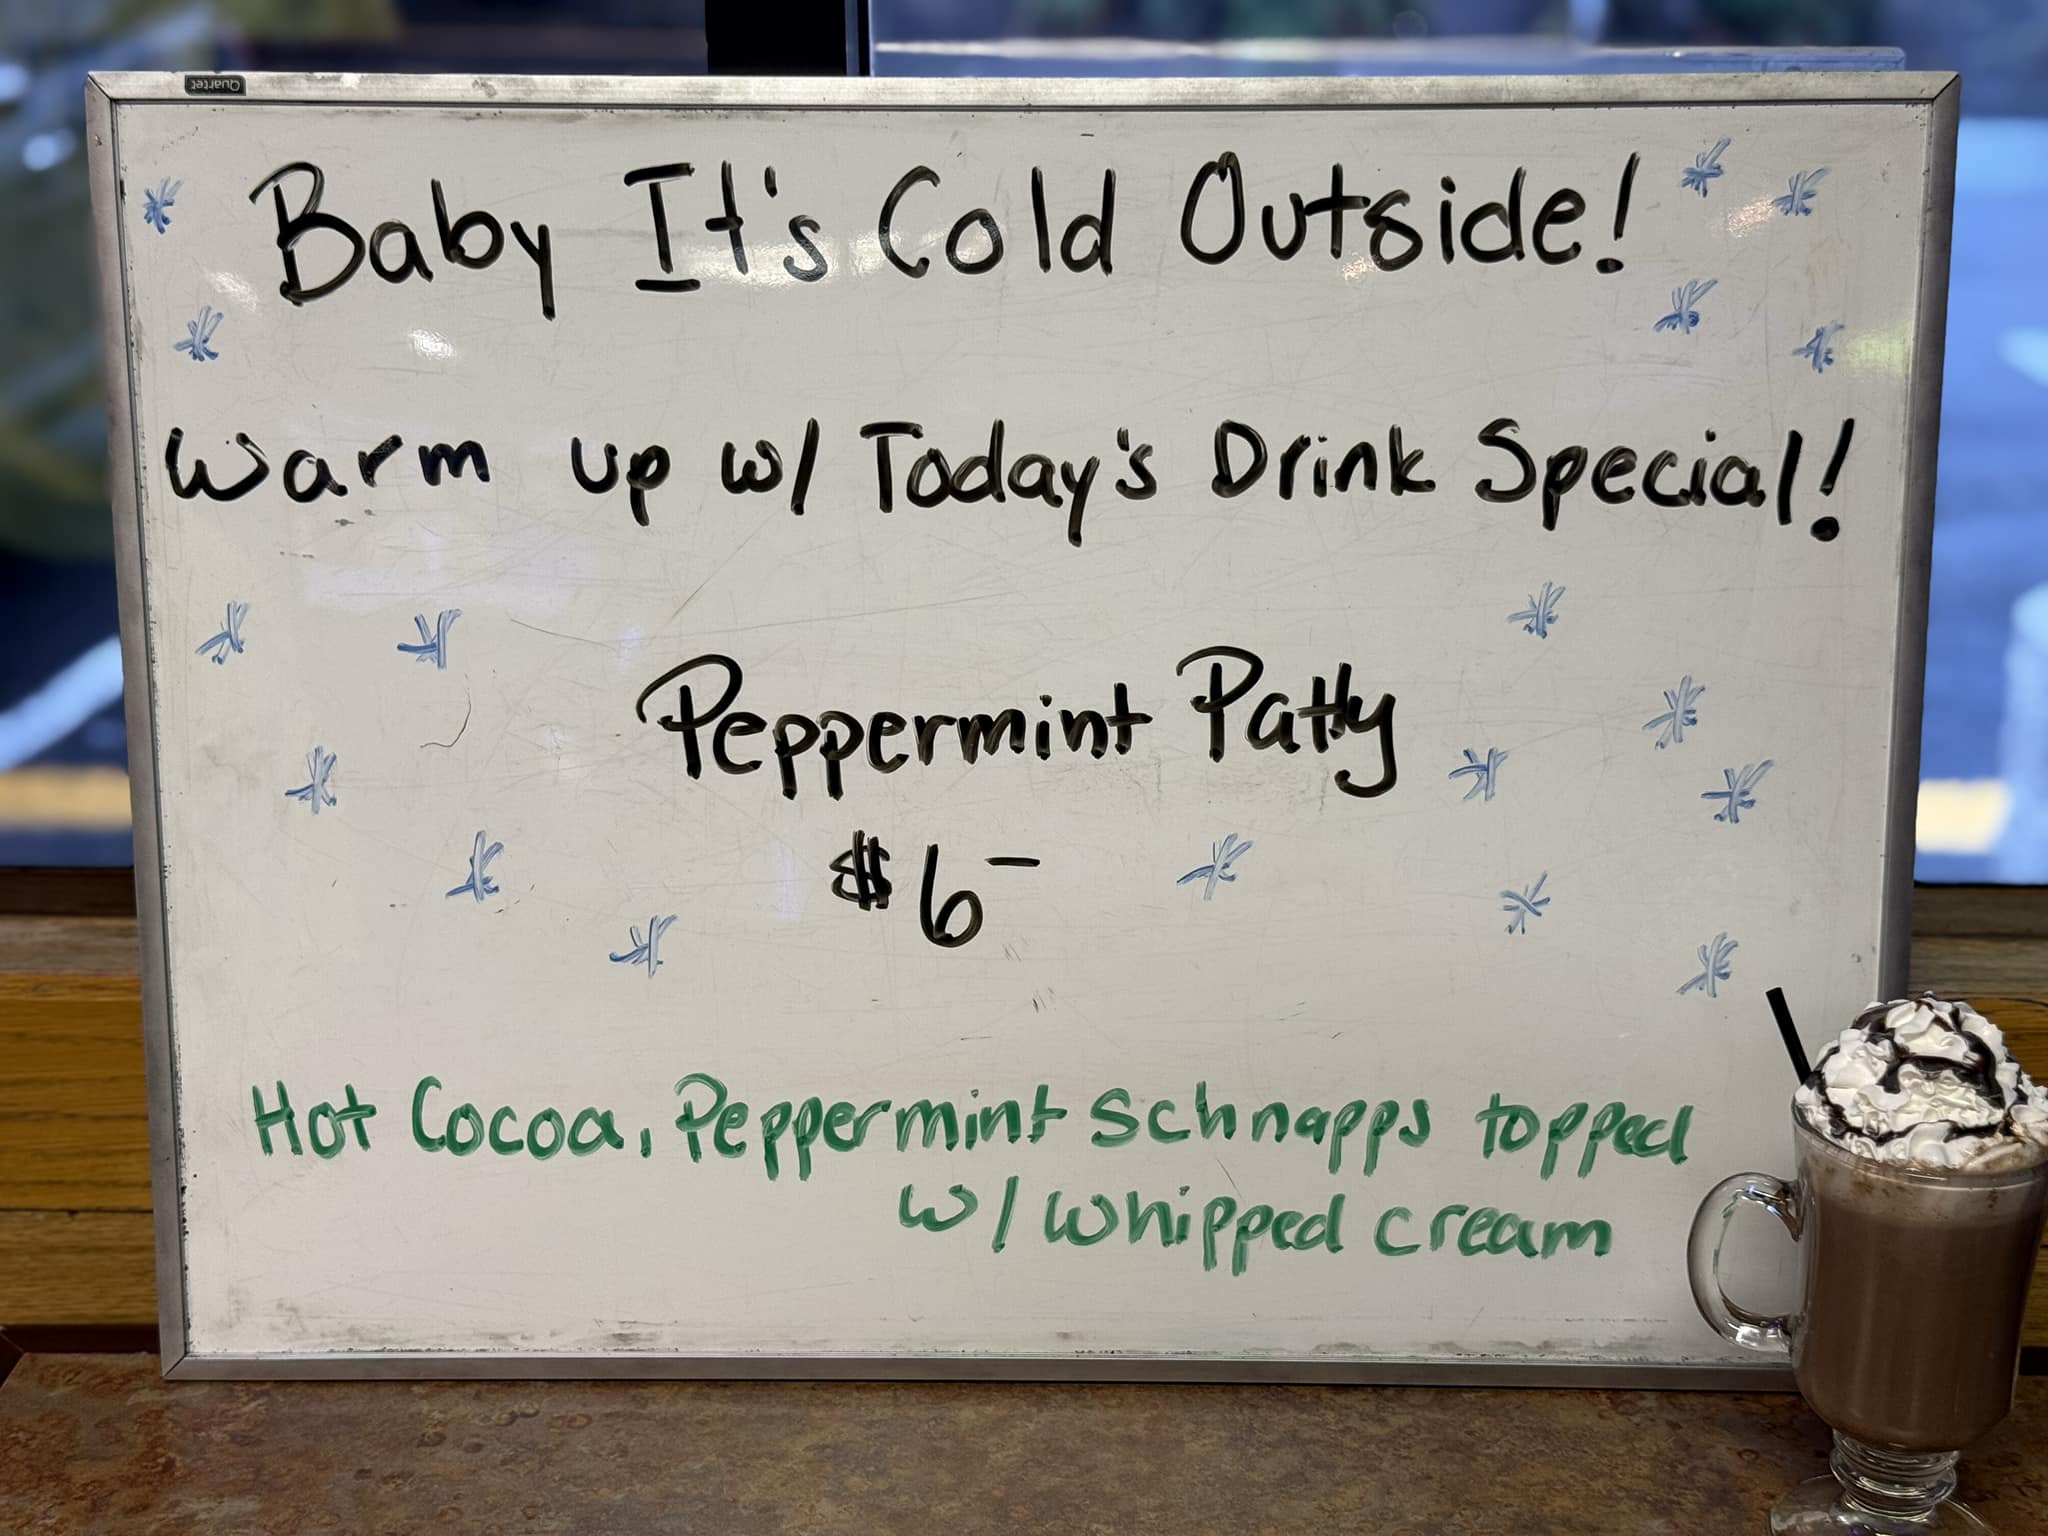 Quartet
Baby It's Cold Outside!
Warm up w/ Today's Drink Special!
Peppermint Patty
$6-
Hot Cocoa, Peppermint Schnapps topped
w/ whipped cream